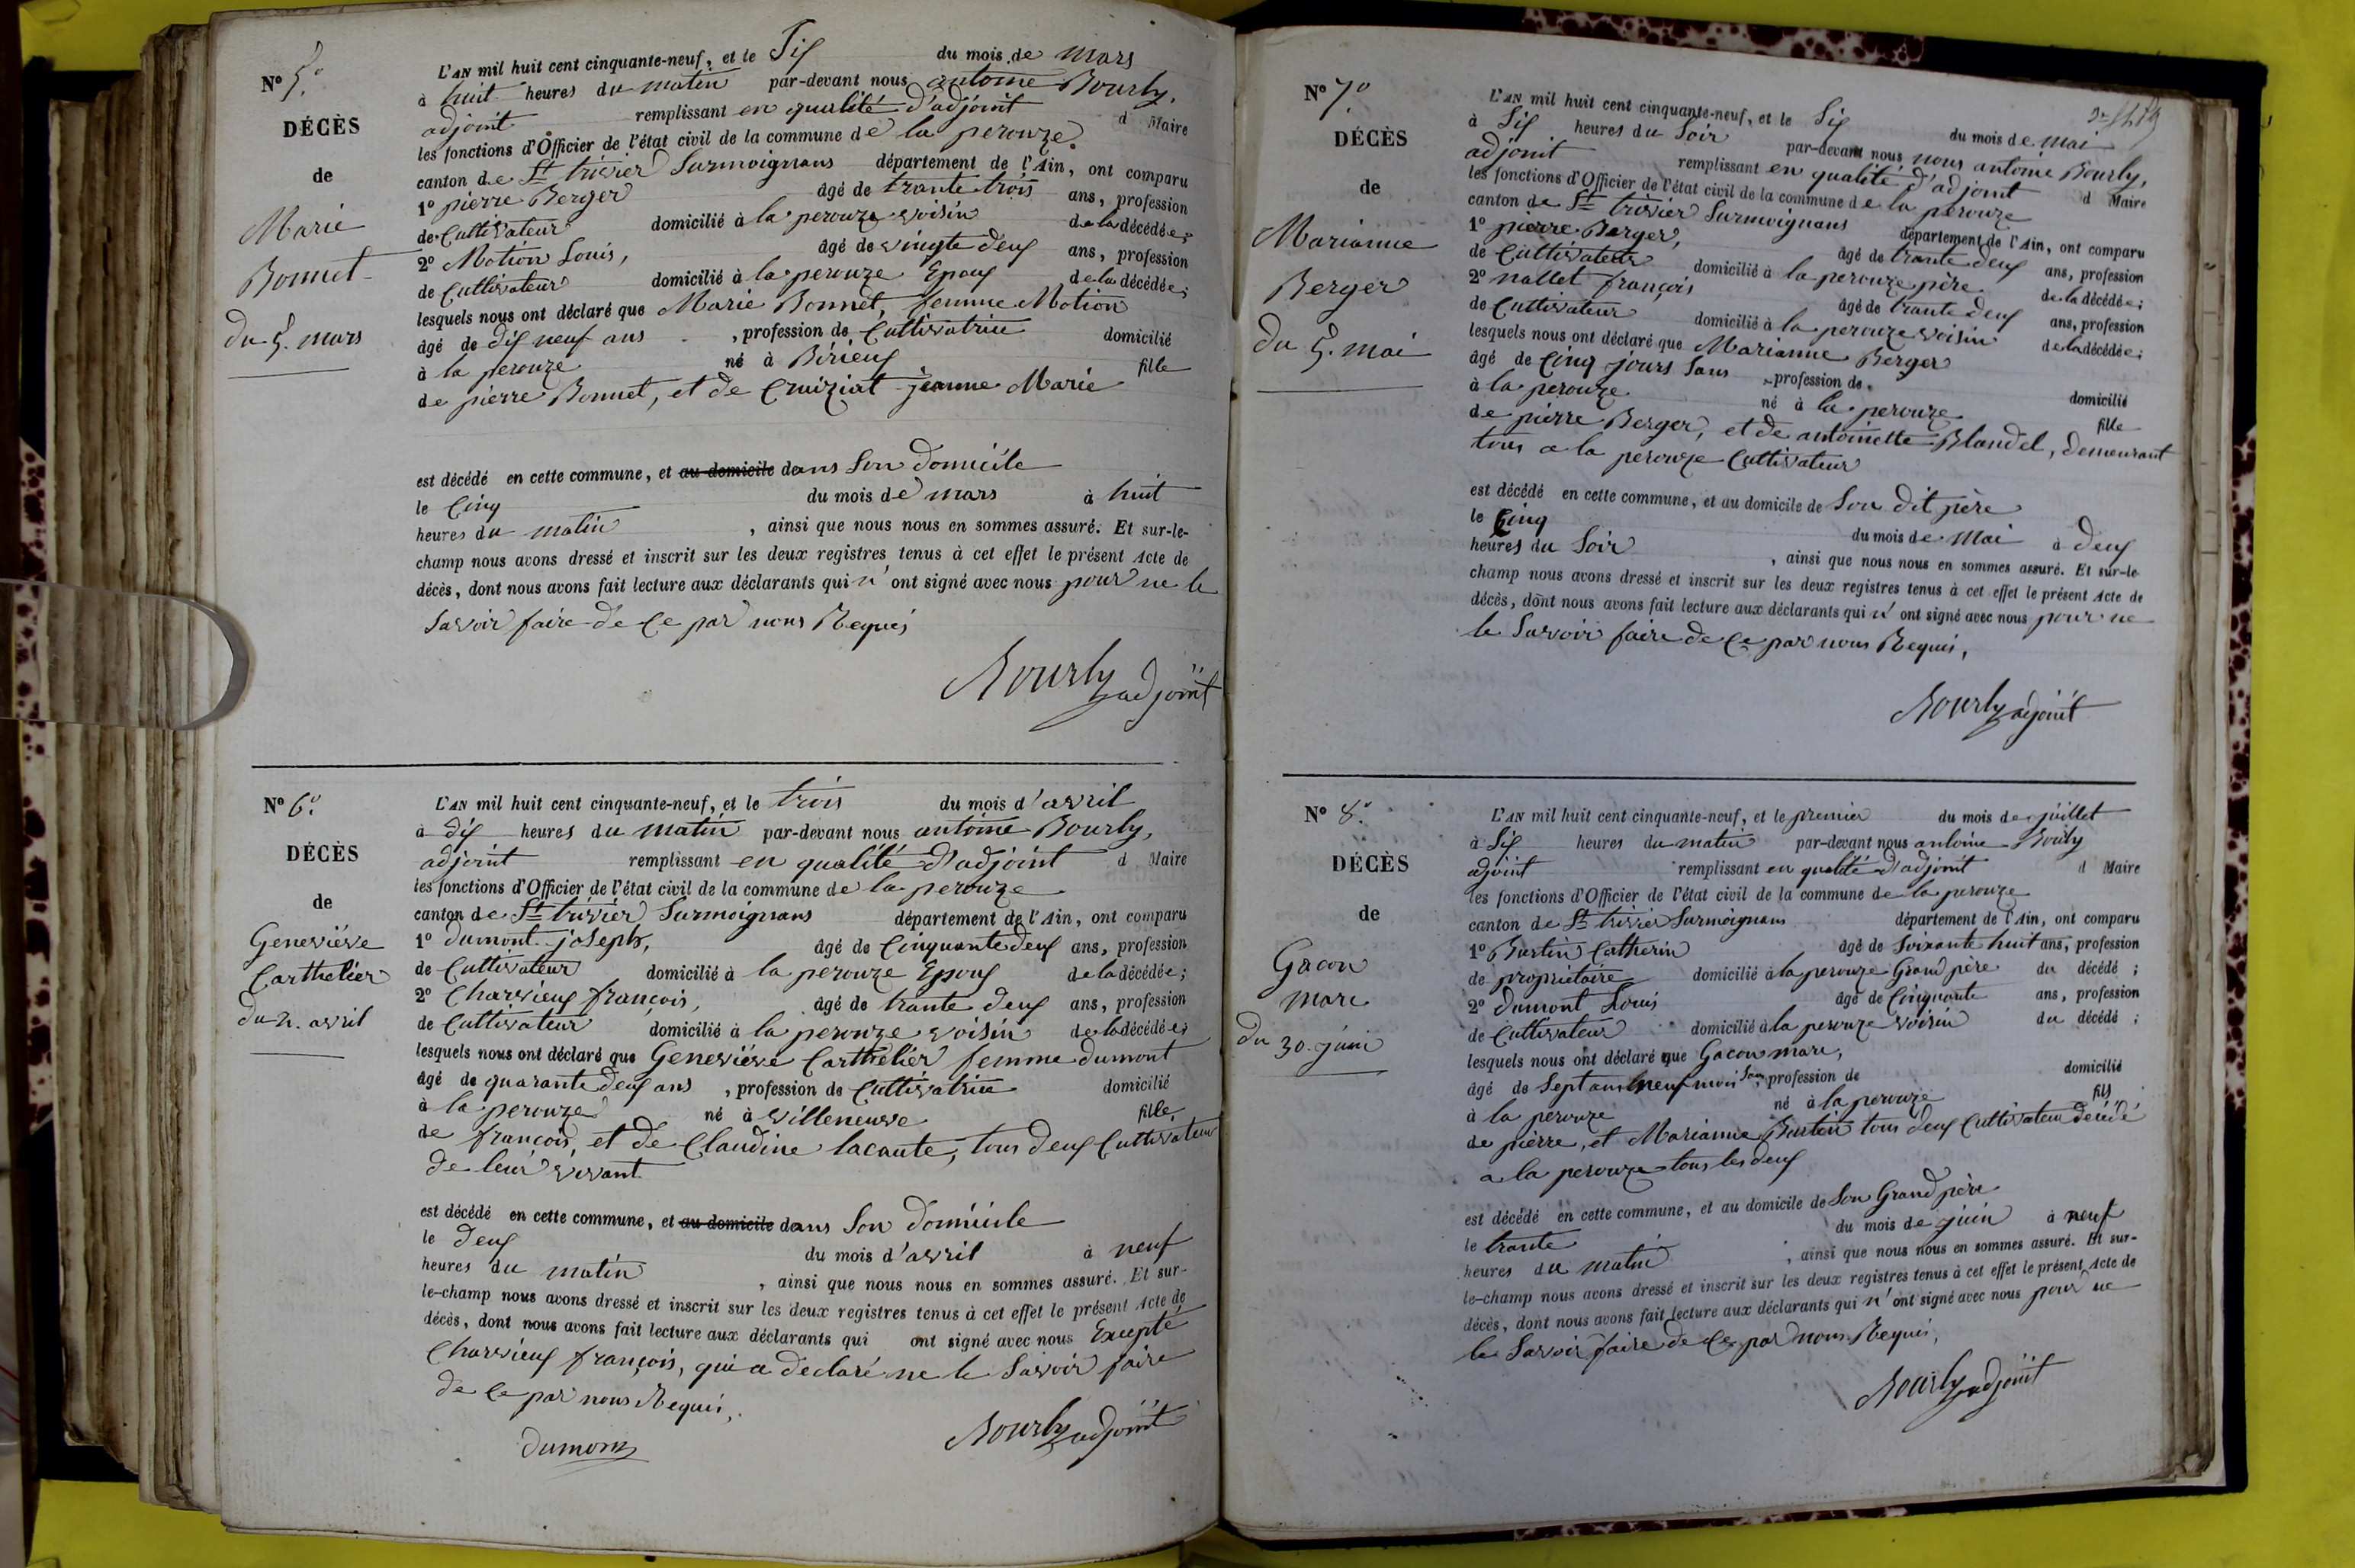 N° 5°.
DÉCÈS
de
Marie
Bonnet
du 5. mars
L'AN mil huit cent cinquante-neuf, et le Six du mois de mars
à huit heures du matin par-devant nous antoine Bourly,
adjoint remplissant en qualité d'adjoint d Maire
les fonctions d'Officier de l'état civil de la commune de la perouze
canton de St trivier Surmoignans département de l'Ain, ont comparu
1° pierre Berger âgé de trante trois ans, profession
de Cultivateur domicilié à la perouze voisin de la décédée;
2° Motion Louis, âgé de vingte deux ans, profession
de Cultivateur domicilié à la perouze Epoux de la décédée;
lesquels nous ont déclaré que Marie Bonnet, femme Motion
âgé de dix neuf ans , profession de Cultivatrice domicilié
à la perouze né à Birieux fille
de pierre Bonnet, et de Cruiziat jeanne Marie
est décédé en cette commune, et au domicile dans Son domicile
le Cinq du mois de mars à huit
heures du matin , ainsi que nous nous en sommes assuré. Et sur-le-
champ nous avons dressé et inscrit sur les deux registres tenus à cet effet le présent Acte de
décès, dont nous avons fait lecture aux déclarants qui n'ont signé avec nous pour ne le
Savoir faire de Ce par nous Requis
Bourly adjoint
N° 6°.
DÉCÈS
de
Geneviéve
Carthelier
du 2. avril
L'AN mil huit cent cinquante-neuf, et le trois du mois d'avril
à dix heures du matin par-devant nous antoine Bourly,
adjoint remplissant en qualité d'adjoint d Maire
les fonctions d'Officier de l'état civil de la commune de la perouze
canton de St trivier Surmoignans département de l'Ain, ont comparu
1° dumont joseph, âgé de Cinquante deux ans, profession
de Cultivateur domicilié à la perouze Epoux de la décédée;
2° Charvieux françois, âgé de trante deux ans, profession
de Cultivateur domicilié à la perouze voisin de la décédée;
lesquels nous ont déclaré que Geneviéve Carthelier femme dumont
âgé de quarante deux ans , profession de Cultivatrice domicilié
à la perouze né à villeneuve fille
de françois, et de Claudine lacaute, tous deux Cultivateur
de leur vivant
est décédé en cette commune, et au domicile dans Son domicile
le deux du mois d'avril à neuf
heures du matin , ainsi que nous nous en sommes assuré. Et sur-
le-champ nous avons dressé et inscrit sur les deux registres tenus à cet effet le présent Acte de
décès, dont nous avons fait lecture aux déclarants qui ont signé avec nous Excepté
Charvieux françois, qui a declaré ne le Savoir faire
de Ce par nous Requis,
dumont
Bourly adjoint
N° 7°.
DÉCÈS
de
Marianne
Berger
du 5. mai
L'AN mil huit cent cinquante-neuf, et le Six du mois de mai
à Six heures du Soir par-devant nous nous antoine Bourly,
adjoint remplissant en qualité d'adjoint d Maire
les fonctions d'Officier de l'état civil de la commune de la perouze
canton de St trivier Surmoignans département de l'Ain, ont comparu
1° pierre Berger, âgé de trante deux ans, profession
de Cultivateur domicilié à la perouze père de la décédée;
2° nallet françois âgé de trante deux ans, profession
de Cultivateur domicilié à la perouze voisin de la décédée;
lesquels nous ont déclaré que Marianne Berger
âgé de Cinq jours Sans profession de domicilié
à la perouze né à la perouze fille
de pierre Berger, et de antoinette Blandel, demeurant
tous a la perouze Cultivateur
est décédé en cette commune, et au domicile de Son dit père
le Cinq du mois de Mai à deux
heures du Soir , ainsi que nous nous en sommes assuré. Et sur-le-
champ nous avons dressé et inscrit sur les deux registres tenus à cet effet le présent Acte de
décès, dont nous avons fait lecture aux déclarants qui n'ont signé avec nous pour ne
le Savoir faire de Ce par nous Requis,
Bourly adjoint
N° 8°.
DÉCÈS
de
Gacon
marc
du 30. juin
L'AN mil huit cent cinquante-neuf, et le premier du mois de juillet
à Six heures du matin par-devant nous antoine Bourly
adjoint remplissant en qualité d'adjoint d Maire
les fonctions d'Officier de l'état civil de la commune de la perouze
canton de St trivier Surmoignans département de l'Ain, ont comparu
1° Burtin Catherin âgé de Soixante huit ans, profession
de propriétaire domicilié à la perouze Grand père du décédé;
2° dumont Louis âgé de Cinquante ans, profession
de Cultivateur domicilié à la perouze voisin du décédé;
lesquels nous ont déclaré que Gacon marc,
âgé de Sept ans neuf mois Sans, profession de domicilié
à la perouze né à la perouze fils
de pierre, et Marianne Burtin tous deux Cultivateur décédé
a la perouze tous les deux
est décédé en cette commune, et au domicile de Son Grand père
le trante du mois de juin à neuf
heures du matin , ainsi que nous nous en sommes assuré. Et sur-
le-champ nous avons dressé et inscrit sur les deux registres tenus à cet effet le présent Acte de
décès, dont nous avons fait lecture aux déclarants qui n'ont signé avec nous pour ne
le Savoir faire de Ce par nous Requis,
Bourly adjoint